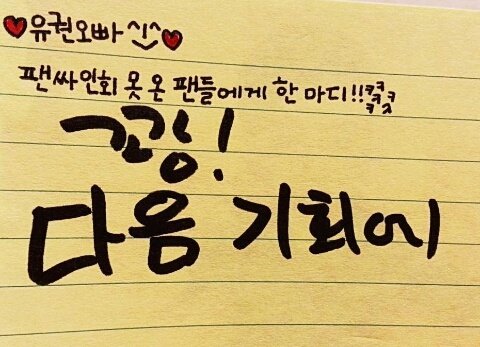 ♥유권오빠 ^!^♥
팬싸인회 못 온 팬들에게 한 마디!! ㅋㅋㅋㅋ
꼬앙!
다음 기회에